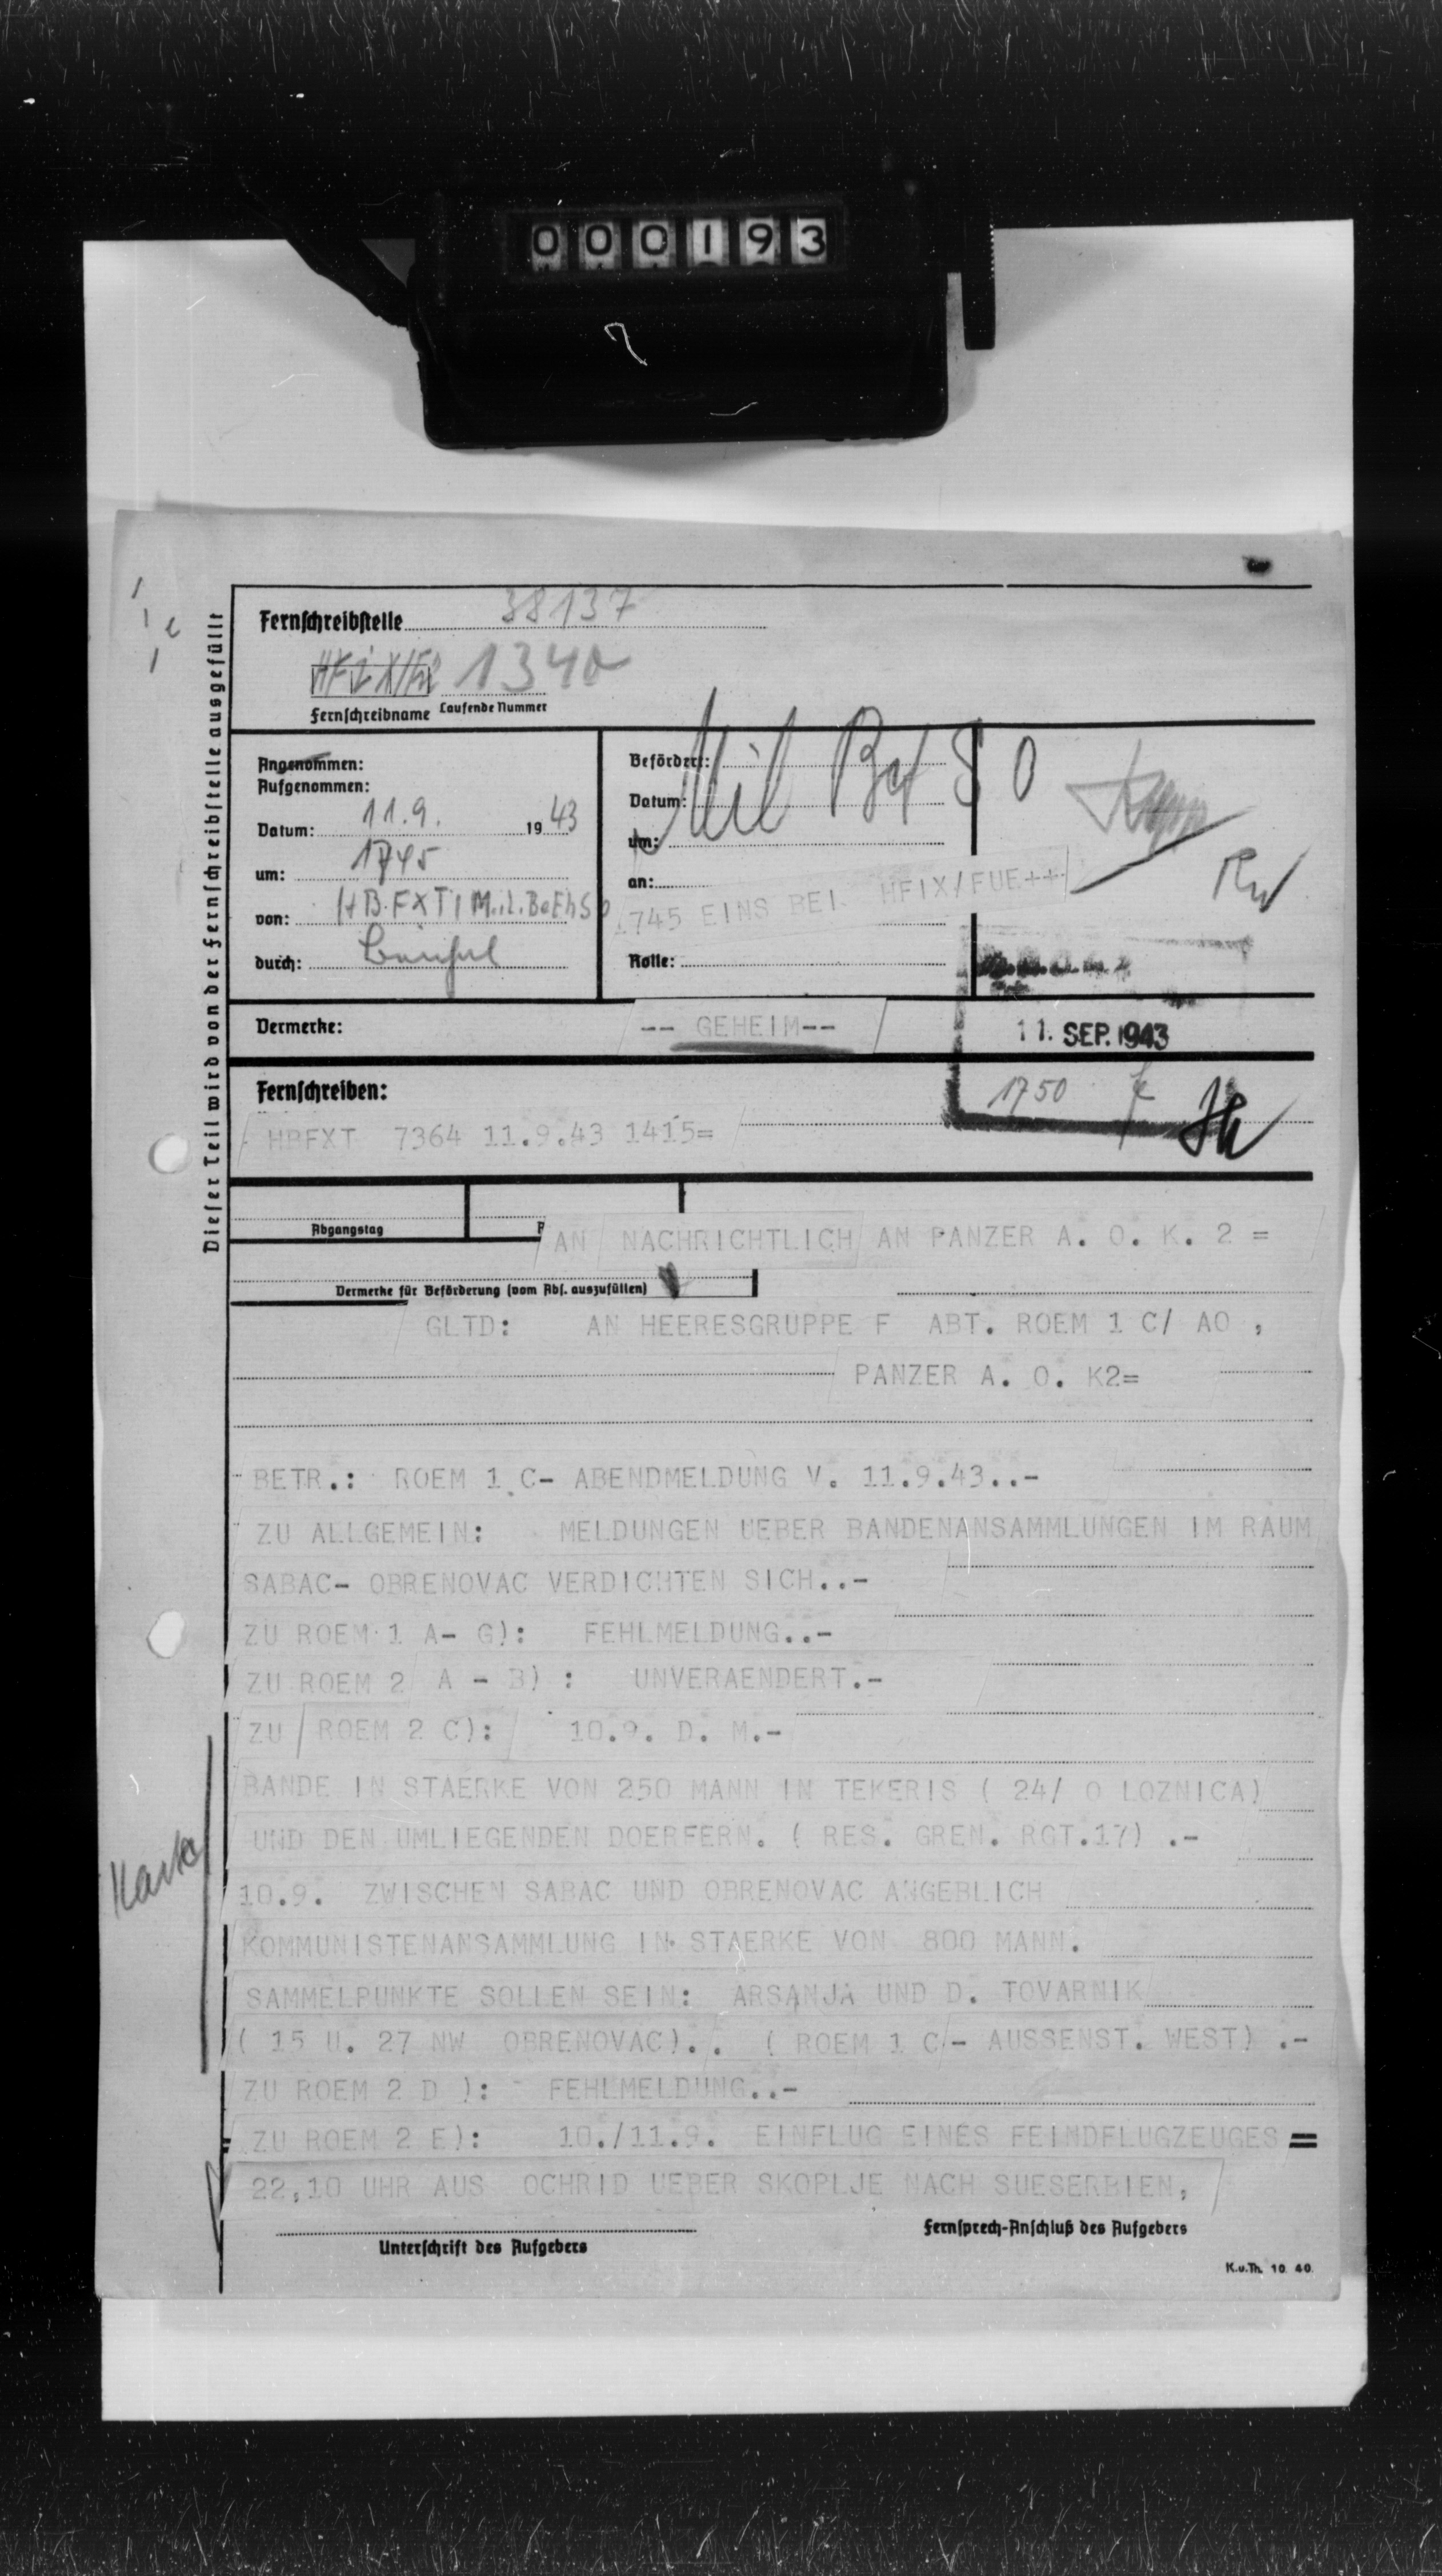 000193
Fernschreibstelle 38137
HFIX/Fü 1340
Fernschreibname Laufende Nummer
Dieser Teil wird von der Fernschreibstelle ausgefüllt
Angenommen:
Aufgenommen:
Datum: 11.9. 19 43
um: 1745
von: HB.FXT / Mil.Befh S O
durch:
Befördert:
Datum:
um:
an:
Rolle:
Mil Bef S O
1745 EINS BEI HFIX/FUE++
Vermerke:
-- GEHEIM--
11. SEP. 1943
1750
Fernschreiben:
- HBFXT 7364 11.9.43 1415=
Abgangstag
AN NACHRICHTLICH AN PANZER A. O. K. 2 =
Vermerke für Beförderung (vom Abs. auszufüllen)
GLTD: AN HEERESGRUPPE F ABT. ROEM 1 C/ AO ,
PANZER A. O. K2=
BETR.: ROEM 1 C- ABENDMELDUNG V. 11.9.43..-
ZU ALLGEMEIN: MELDUNGEN UEBER BANDENANSAMMLUNGEN IM RAUM
SABAC- OBRENOVAC VERDICHTEN SICH..-
ZU ROEM 1 A- G): FEHLMELDUNG..-
ZU ROEM 2 A - B) : UNVERAENDERT.-
ZU ROEM 2 C): 10.9. D. M.-
BANDE IN STAERKE VON 250 MANN IN TEKERIS ( 24/ O LOZNICA)
UND DEN UMLIEGENDEN DOERFERN. ( RES. GREN. RGT.17) .-
Karte
10.9. ZWISCHEN SABAC UND OBRENOVAC ANGEBLICH
KOMMUNISTENANSAMMLUNG IN STAERKE VON 800 MANN.
SAMMELPUNKTE SOLLEN SEIN: ARSANJA UND D. TOVARNIK
( 15 U. 27 NW OBRENOVAC).. ( ROEM 1 C- AUSSENST. WEST) .-
ZU ROEM 2 D ): - FEHLMELDUNG..-
ZU ROEM 2 E): 10./11.9. EINFLUG EINES FEINDFLUGZEUGES =
22,10 UHR AUS OCHRID UEBER SKOPLJE NACH SUESERBIEN,
Unterschrift des Aufgebers
Fernsprech-Anschluß des Aufgebers
K.u.Th. 10. 40.